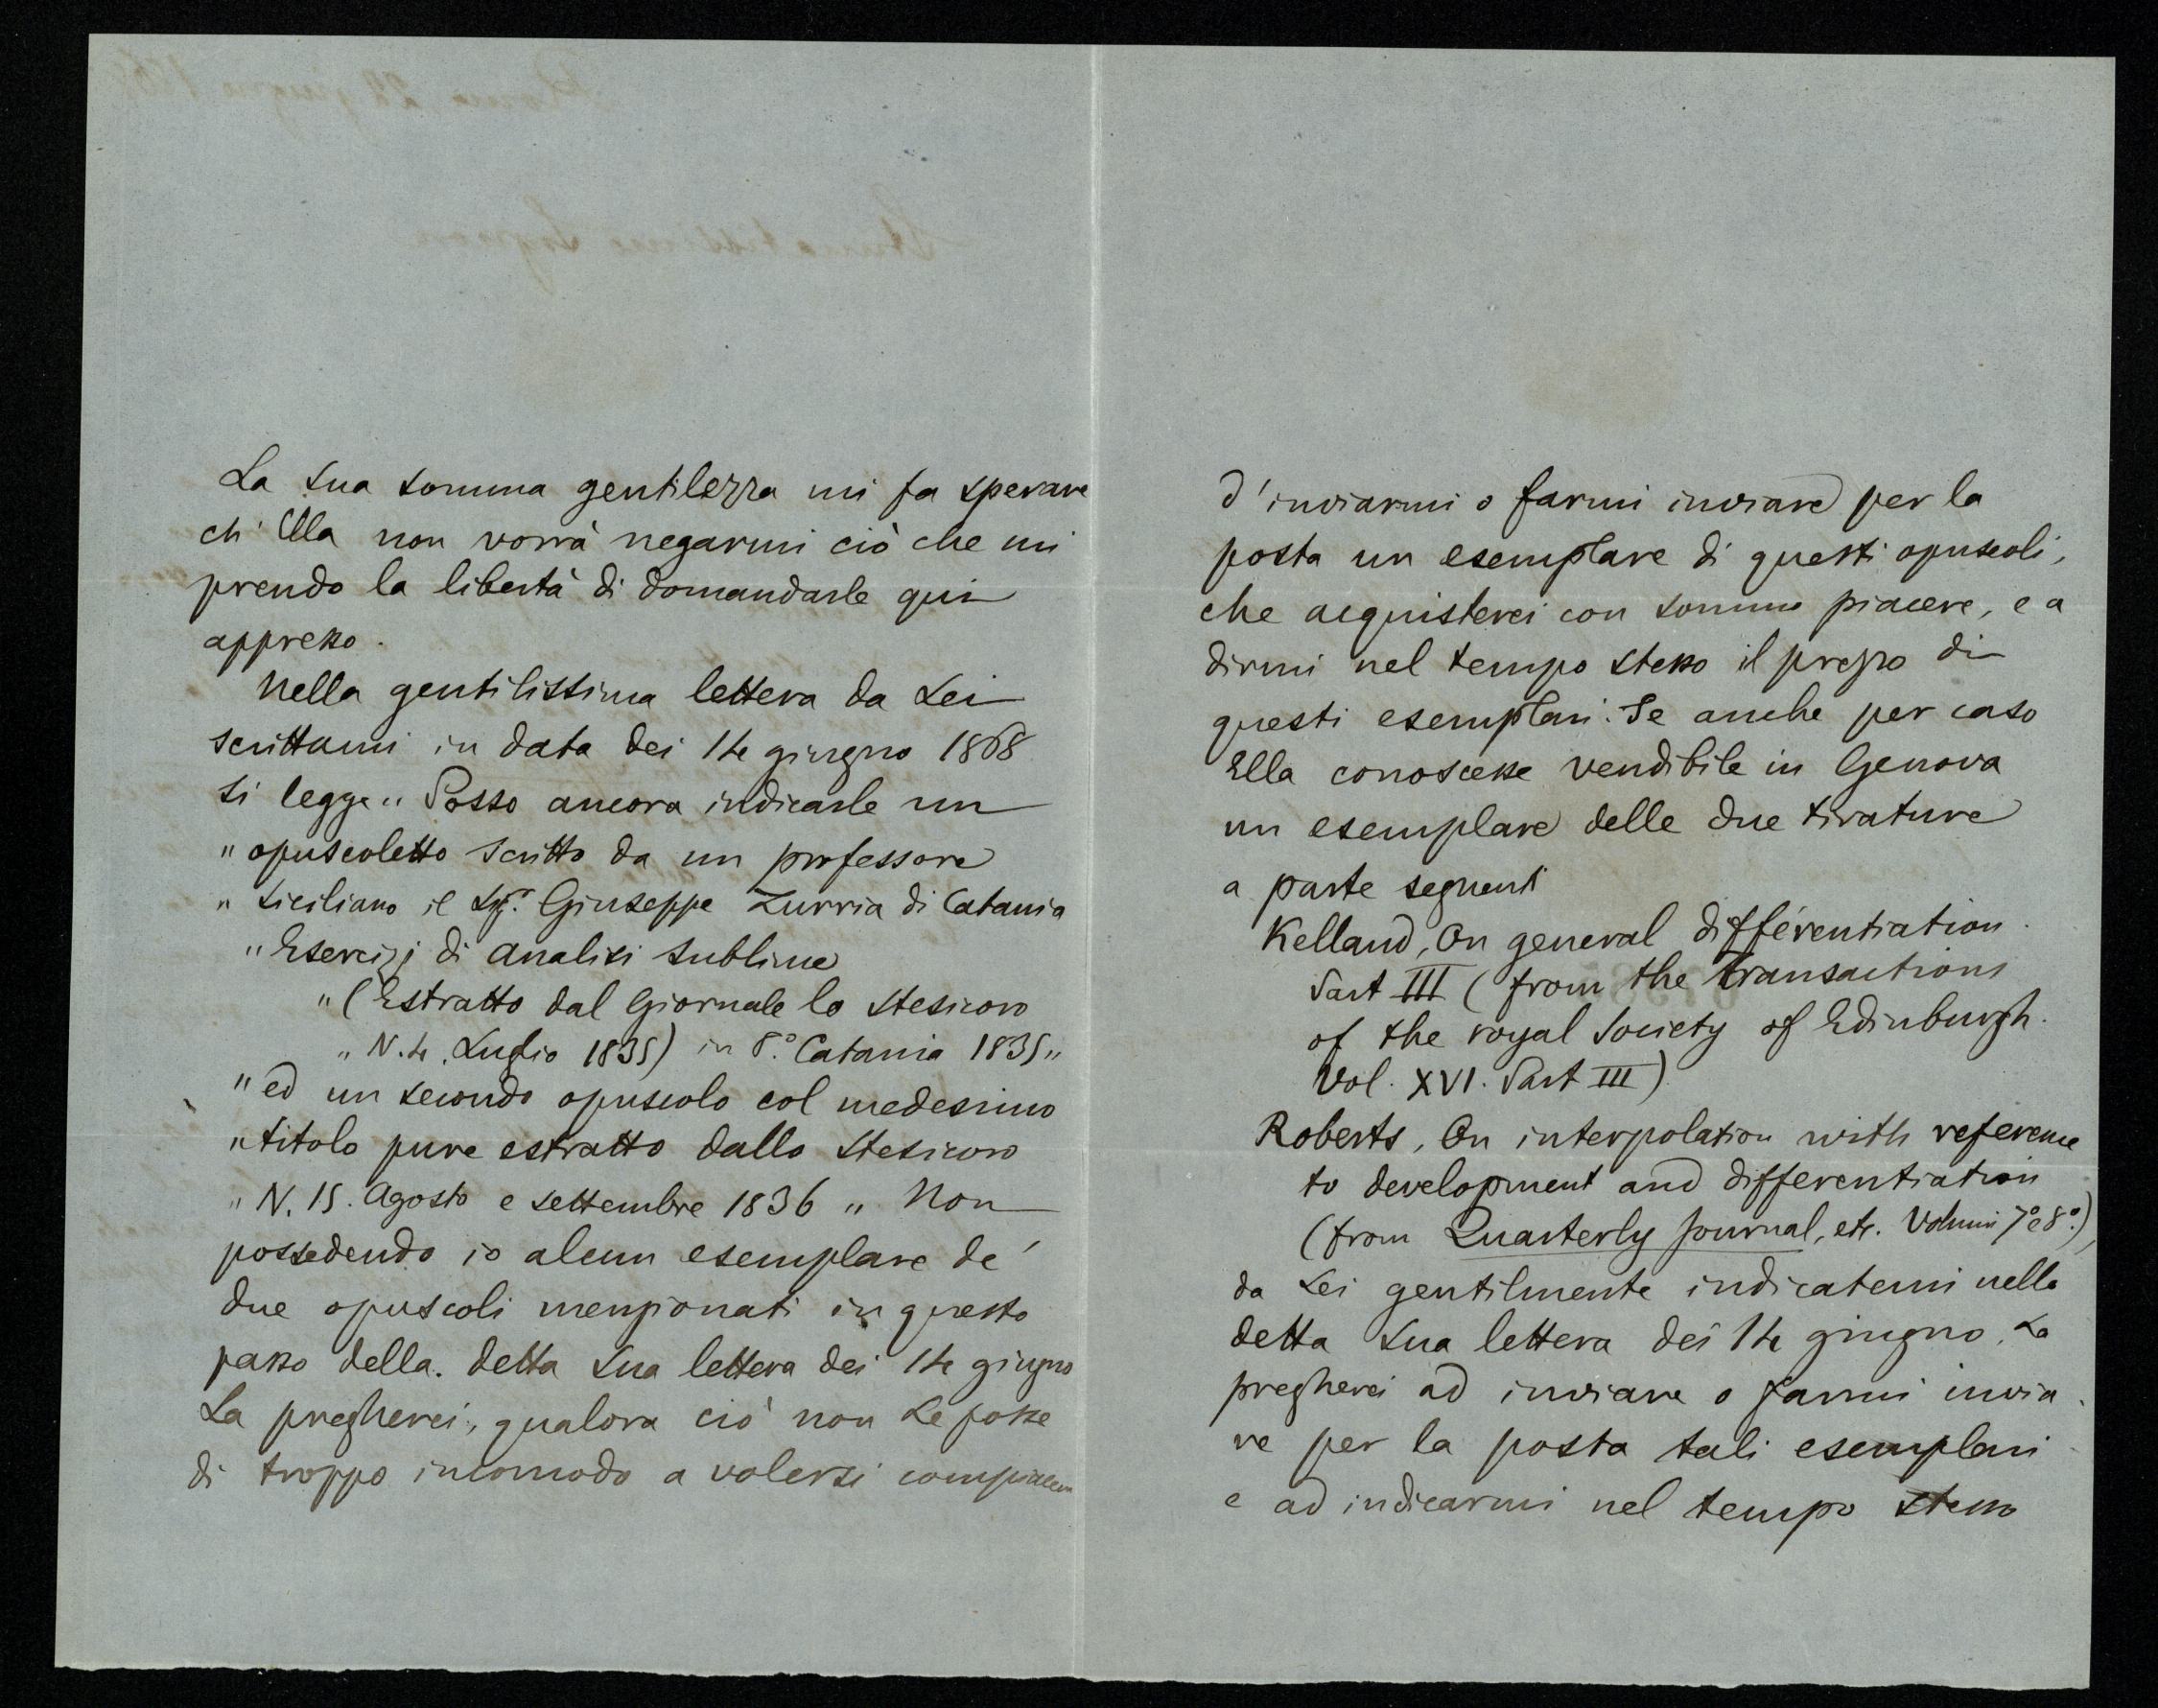 La Sua somma gentilezza mi fa sperare
ch' Ella non vorrà negarmi ciò che mi
prendo la libertà di domandarle qui
appresso.
Nella gentilissima lettera da Lei
scrittami in data dei 14 giugno 1868
si legge „ Posso ancora indicarle un
„ opuscoletto scritto da un professore
„ Siciliano il Sigr. Giuseppe Zurria di Catania
„ Esercizj di analisi sublime
„ (Estratto dal Giornale lo Stesicoro
„ N. 4. Luglio 1835) in 8.° Catania 1835 „
„ ed un secondo opuscolo col medesimo
„ titolo pure estratto dallo Stesicoro
„ N. 15. Agosto e settembre 1836 „ Non
possedendo io alcun esemplare de'
due opuscoli menzionati in questo
passo della. detta Sua lettera dei 14 giugno
La pregherei, qualora ciò non Le fosse
di troppo incomodo a volersi compiacere
d'inviarmi o farmi inviare per la
posta un esemplare di questi opuscoli,
che acquisterei con sommo piacere, e a
dirmi nel tempo stesso il prezzo di
questi esemplari. Se anche per caso
Ella conoscesse vendibile in Genova
un esemplare delle due tirature
a parte seguenti
Kelland, On general differentiation.
Part III (from the transactions
of the royal Society of Edinburgh.
Vol. XVI. Part III)
Roberts, On interpolation with reference
to development and differentiation
(from Quarterly Journal, etc. Volumi 7° e 8°.),
da Lei gentilmente indicatemi nella
detta Sua lettera dei 14 giugno, La
pregherei ad inviare o farmi invia
re per la posta tali esemplari
e ad indicarmi nel tempo stesso